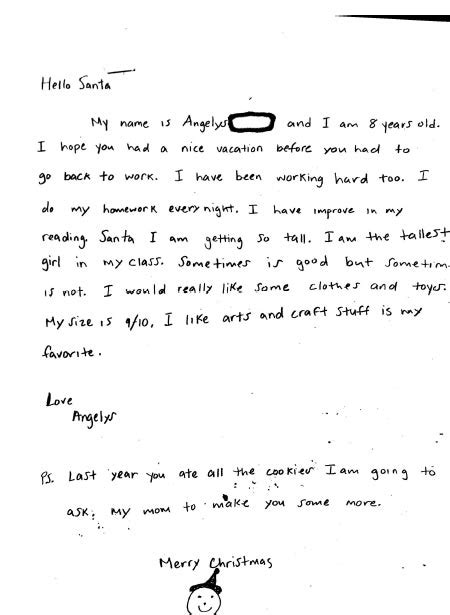 Hello Santa
My name is Angelys and I am 8 years old.
I hope you had a nice vacation before you had to
go back to work. I have been working hard too. I
do my homework every night. I have improve in my
reading. Santa I am getting so tall. I am the tallest
girl in my class. Sometimes is good but sometim
is not. I would really like some clothes and toys.
My size is 9/10. I like arts and craft stuff is my
favorite.
Love
Angelys
Ps. Last year you ate all the cookies I am going to
ask my mom to make you some more.
Merry Christmas